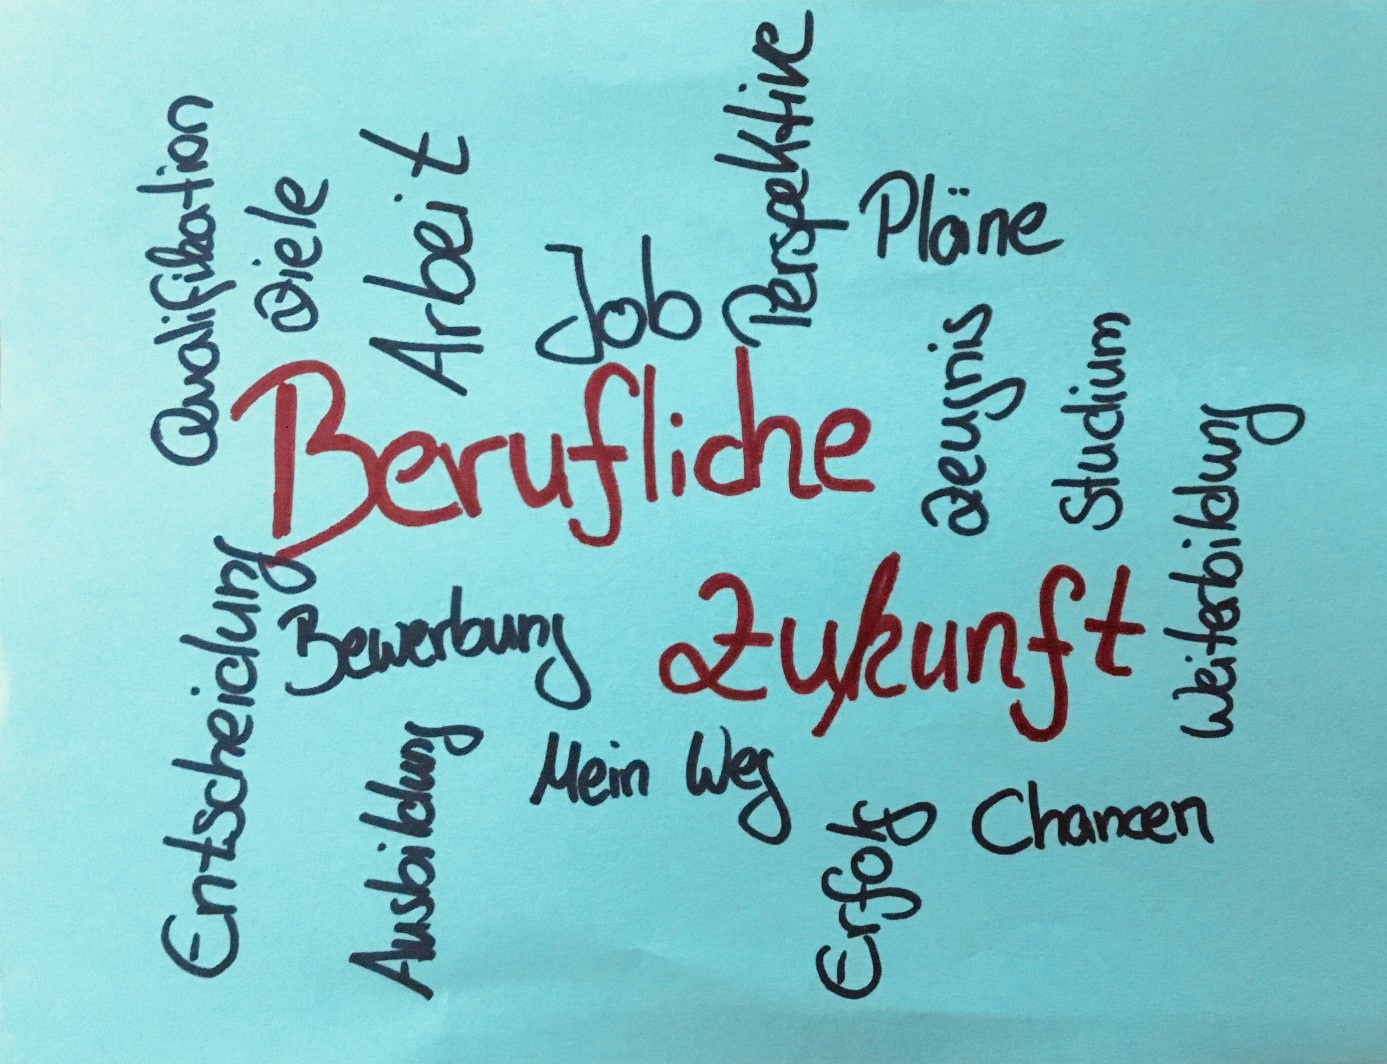 Qualifikation
Ziele
Arbeit
Job
Perspektive
Pläne
Berufliche
Zeugnis
Studium
Weiterbildung
Zukunft
Entscheidung
Bewerbung
Ausbildung
Mein Weg
Erfolg
Chancen